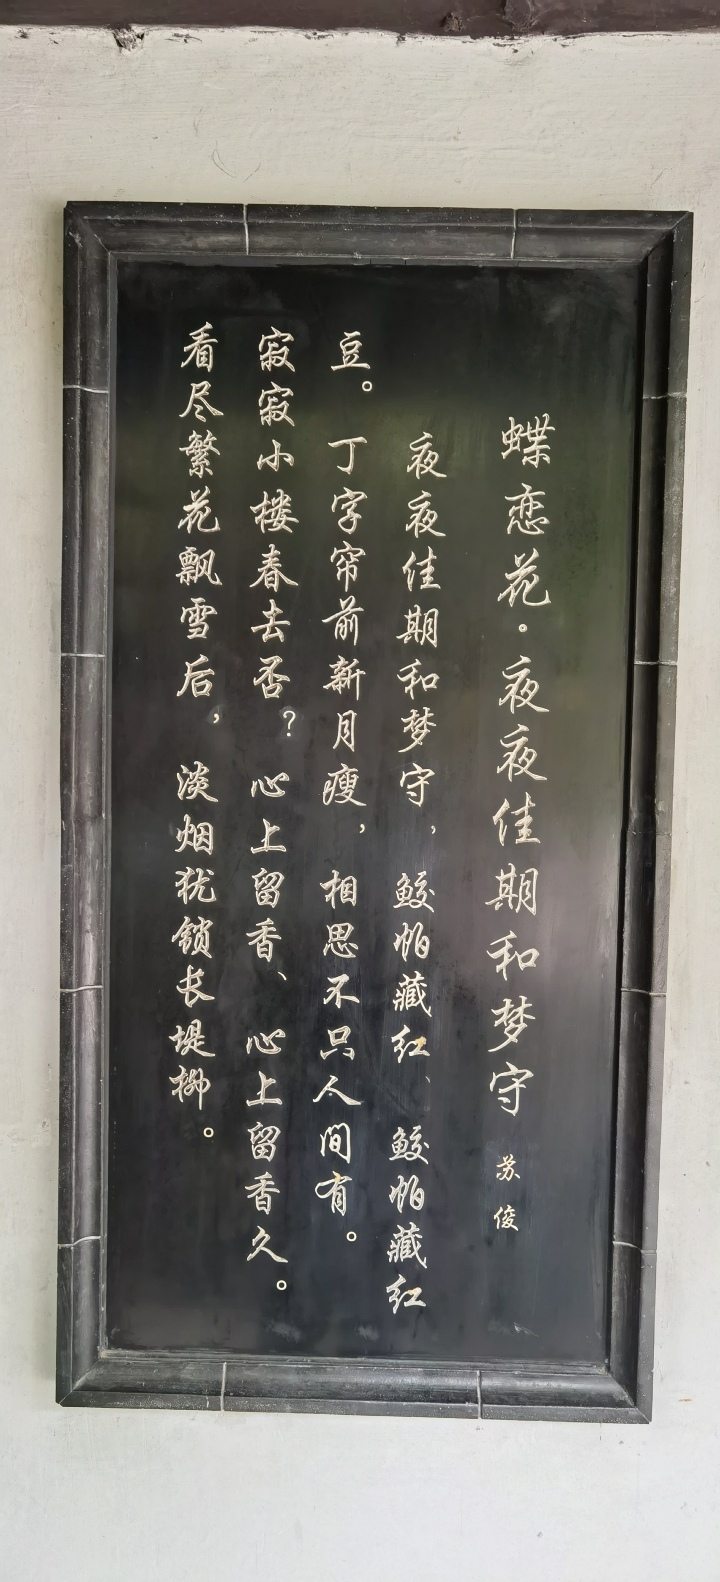 蝶恋花。夜夜佳期和梦守 苏俊
夜夜佳期和梦守，鲛帕藏红、鲛帕藏红
豆。丁字帘前新月瘦，相思不只人间有。
寂寂小楼春去否？心上留香、心上留香久。
看尽繁花飘雪后，淡烟犹锁长堤柳。